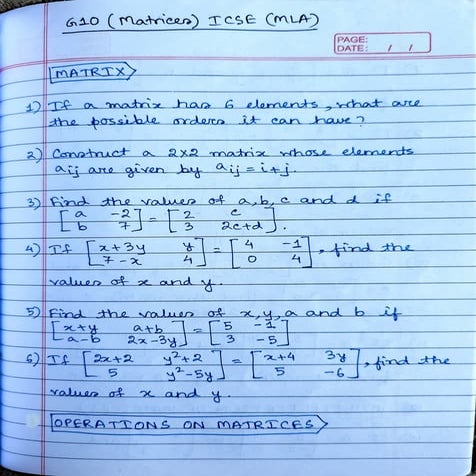 G10 (Matrices) ICSE (MLA)
PAGE:
DATE: / /
MATRIX
1) If a matrix has 6 elements, what are
the possible orders it can have?
2) Construct a 2x2 matrix whose elements
aij are given by aij = i+j.
3) Find the values of a, b, c and d if
[a -2] = [2 c]
[b 7] [3 2c+d].
4) If [x+3y y] = [4 -1], find the
[7-x 4] [0 4]
values of x and y.
5) Find the values of x, y, a and b if
[x+y a+b] = [5 -1]
[a-b 2x-3y] [3 -5]
6) If [2x+2 y²+2] = [x+4 3y], find the
[5 y²-5y] [5 -6]
values of x and y.
OPERATIONS ON MATRICES